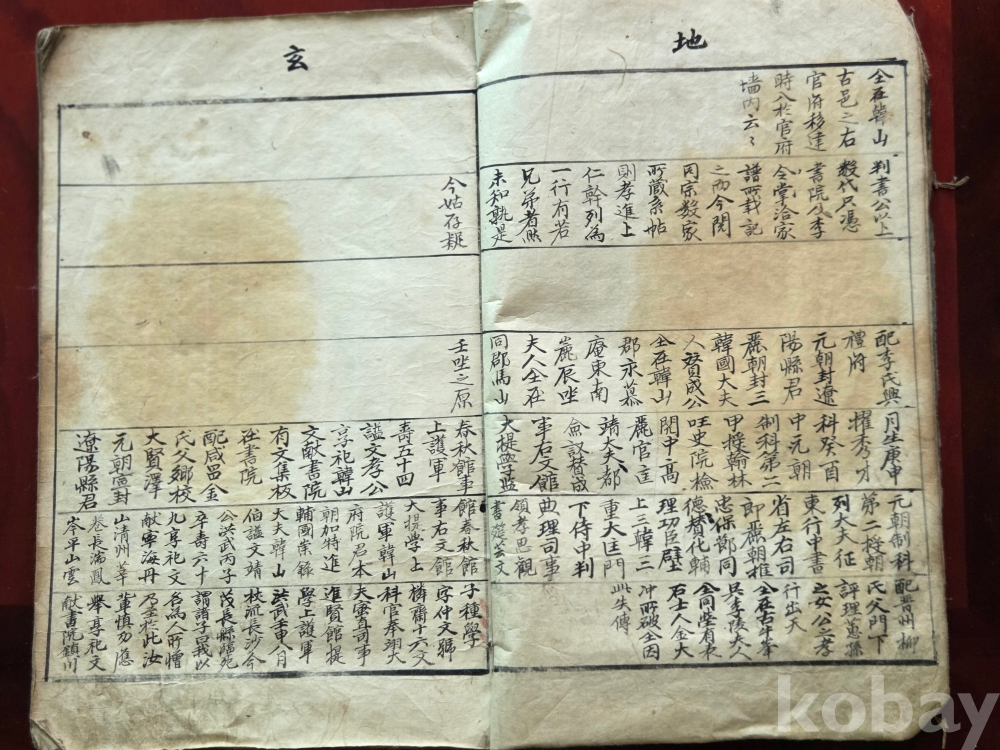 地
仝在韓山
古邑之右
官府移建
時入於官府
墙内云〻
判書公以上
数代只憑
書院及李
令堂洽家
譜所載記
之而今閱
同宗数家
所蔵系帖
則孝進上
仁幹列為
一行有若
兄弟者然
未知孰是
配李氏興
禮府
元朝封遼
陽縣君
麗朝封三
韓國大夫
人賛成公
仝在韓山
郡永慕
庵東南
麓辰坐
夫人仝在
同郡馬山
月生庚申
擢秀才
科癸酉
中元朝
制科第二
甲授翰林
国史院檢
閱中高
麗官匡
靖大夫都
僉議賛成
事右文館
大提學監
元朝制科
第二授朝
列大夫征
東行中書
省左右司
郎麗朝推
忠保節同
德賛化輔
理功臣壁
上三韓三
重大匡門
下侍中判
典理司事
領孝思觀
書筵芸文
配晋州柳
氏父門下
評理蕙孫
之女公之孝
行出天
仝在古牛峯
只李陵夫人
仝同塋有表
石士人仝大
冲所破仝因
此失傳
玄
今姑存疑
壬坐之原
春秋館事
上護軍
壽五十四
謚文孝公
享祀韓山
文献書院
有文集板
在書院
配咸昌金
氏父郷校
大賢澤
元朝宣封
遼陽縣君
館春秋館
事右文館
大提學上
護軍韓山
府院君本
朝如特進
輔國崇祿
大夫韓山
伯謚文靖
公洪武丙子
卒壽六十
九享祀文
献寧海丹
山清州莘
巷長湍鳳
岑平山雲
子種學
字仲文號
麟齋十六文
科官奉翊大
夫宻直司事
進賢館提
學上護軍
洪武壬申八月
校流長沙今
茂長縣臨死
謂諸子曰我以
名為人所憎
乃至於此汝
軰慎勿應
舉享祀文
献書院鎮川
kobay